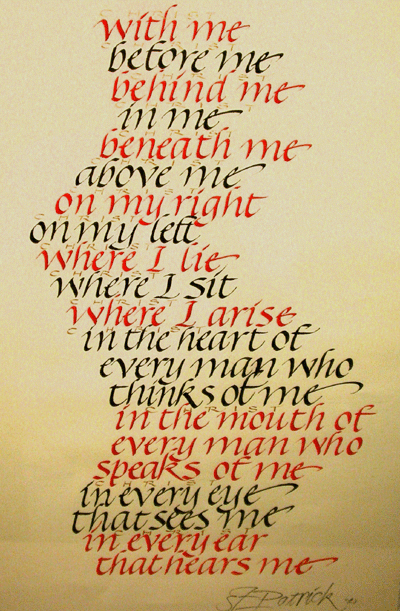 with me
before me
behind me
in me
beneath me
above me
on my right
on my left
where I lie
where I sit
where I arise
in the heart of
every man who
thinks of me
in the mouth of
every man who
speaks of me
in every eye
that sees me
in every ear
that hears me
Patrick